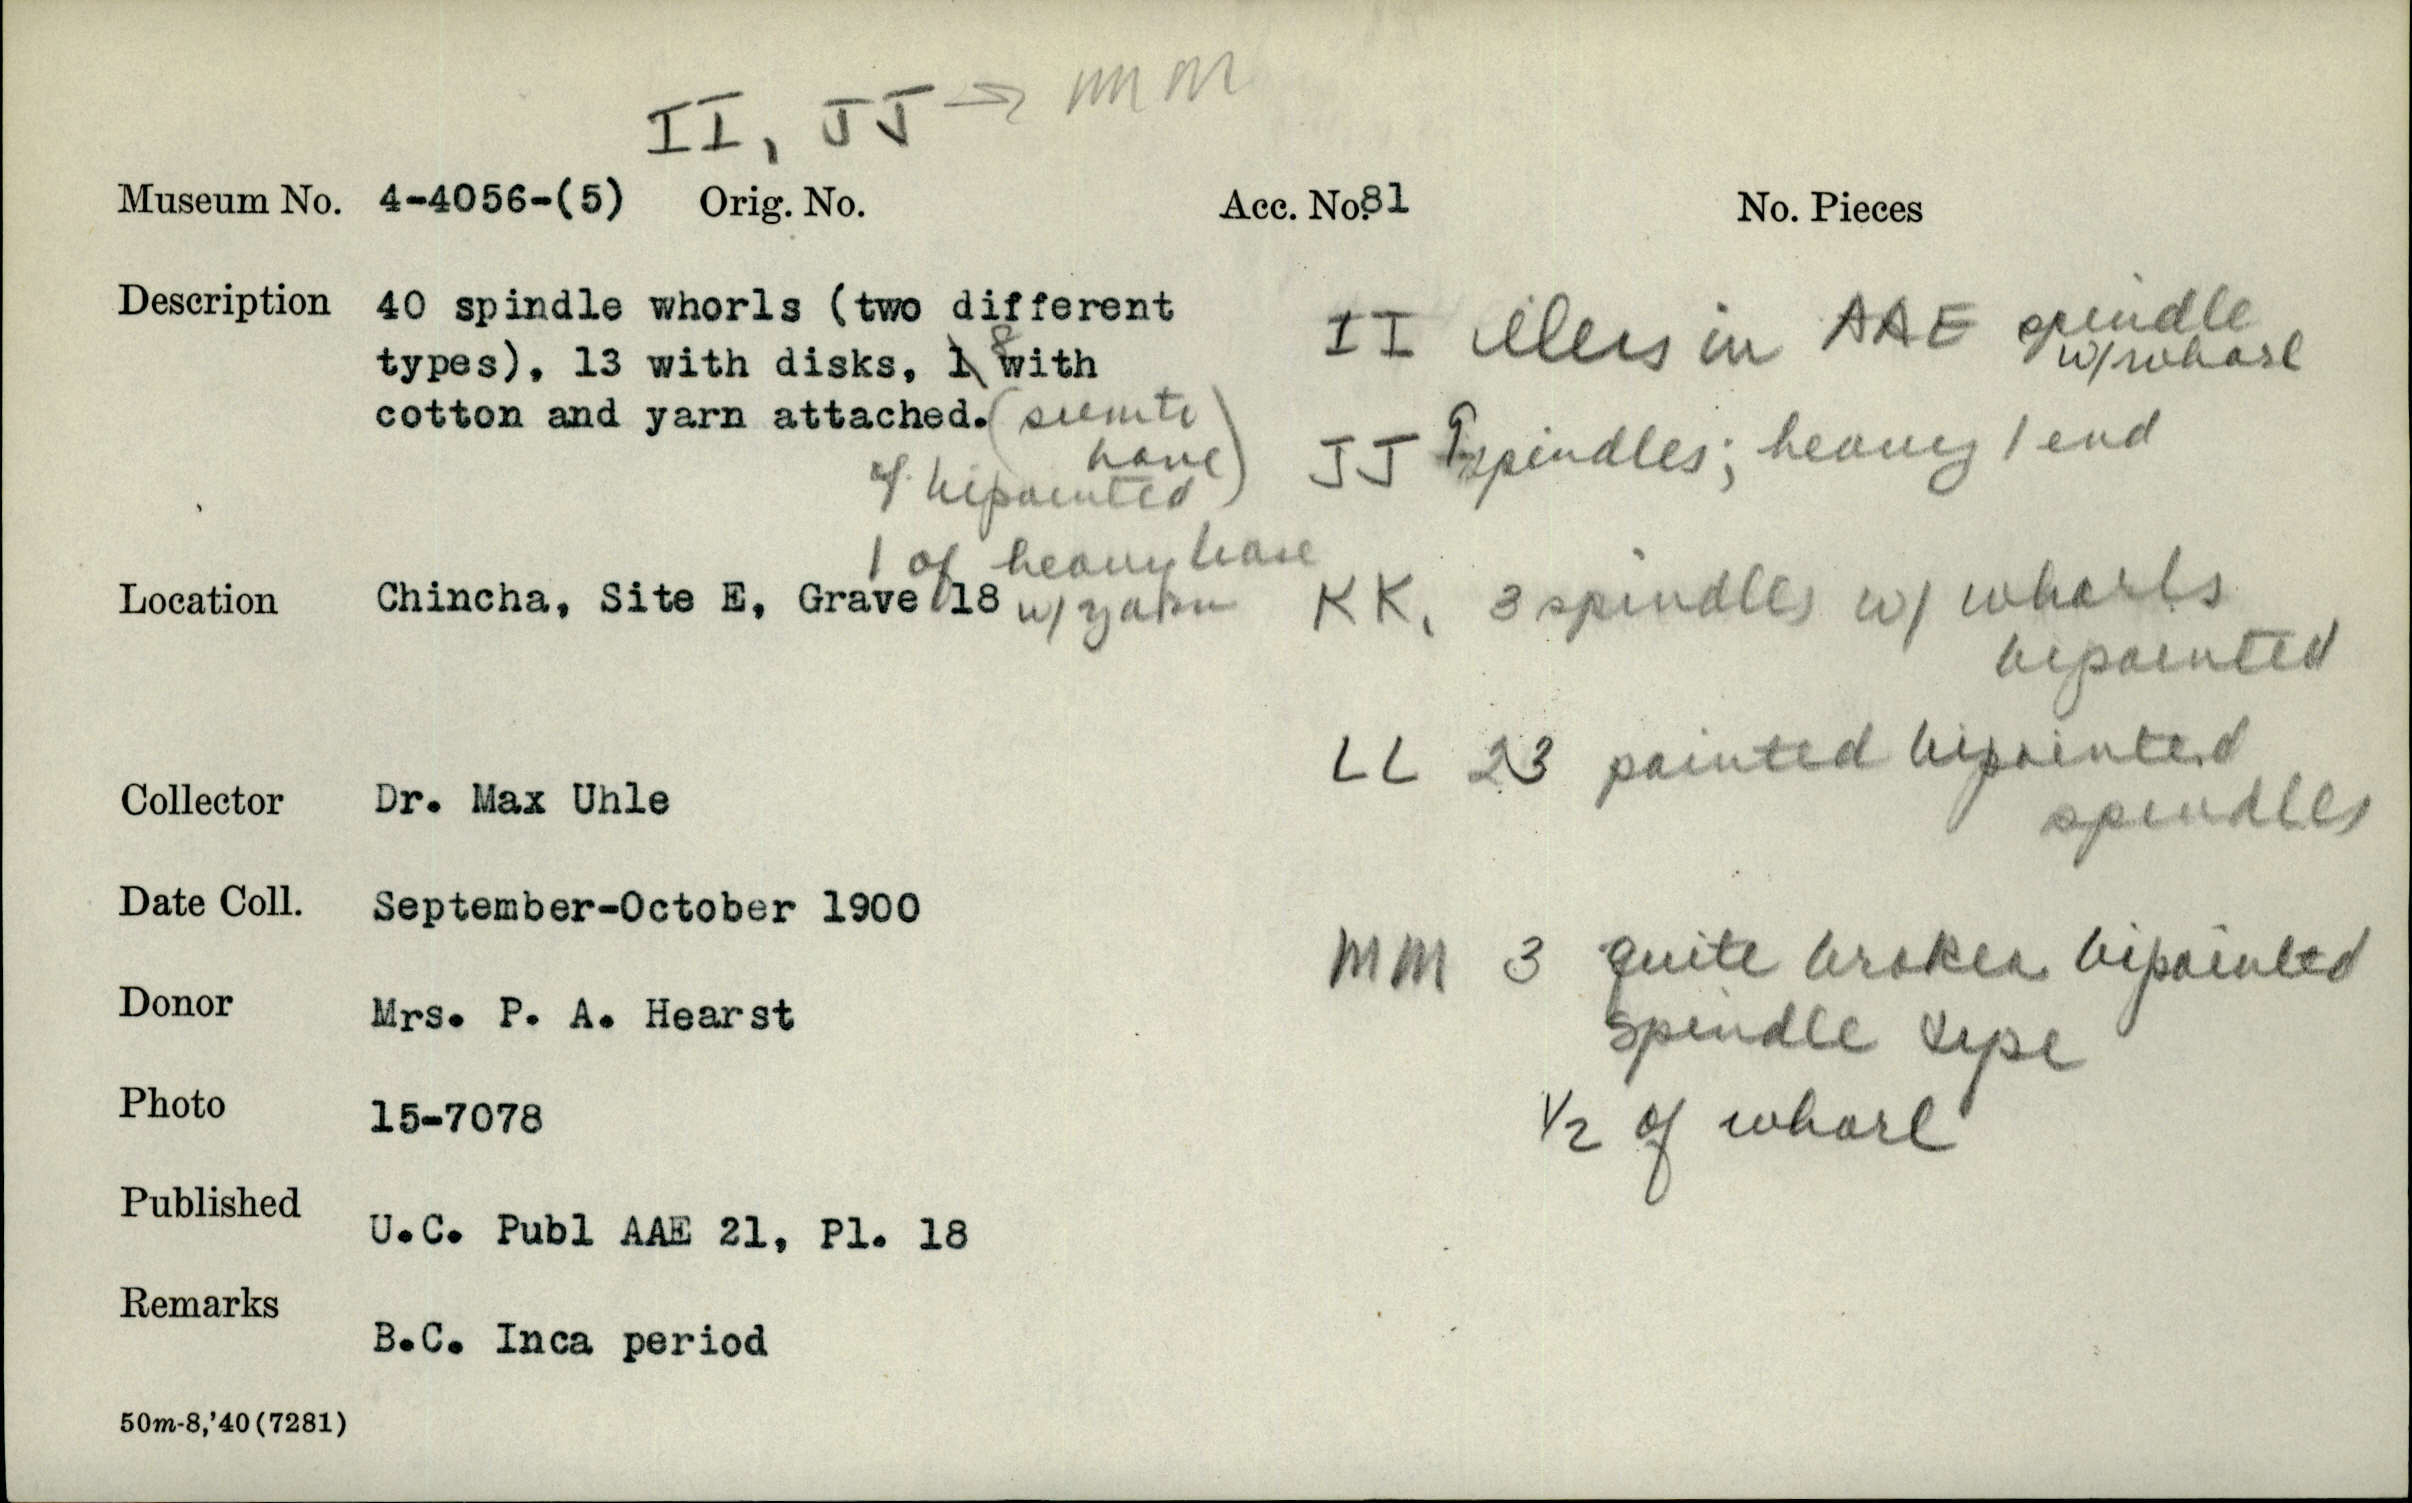 II, JJ → MM
Museum No. 4-4056-(5) Orig. No. Acc. No. 81 No. Pieces
Description 40 spindle whorls (two different
types), 13 with disks, 1 8 with
cotton and yarn attached. (seem to
have)
7 bipointed
1 of heavy base
w/ yarn
Location Chincha, Site E, Grave 18
Collector Dr. Max Uhle
Date Coll. September-October 1900
Donor Mrs. P. A. Hearst
Photo 15-7078
Published U.C. Publ AAE 21, Pl. 18
Remarks B.C. Inca period
50m-8,'40(7281)
II illus in AAE spindle
w/ whorl
JJ 9 spindles; heavy 1 end
KK. 3 spindles w/ whorls
bipointed
LL 23 painted bipointed
spindles
MM 3 quite broken bipointed
spindle type
1/2 of whorl